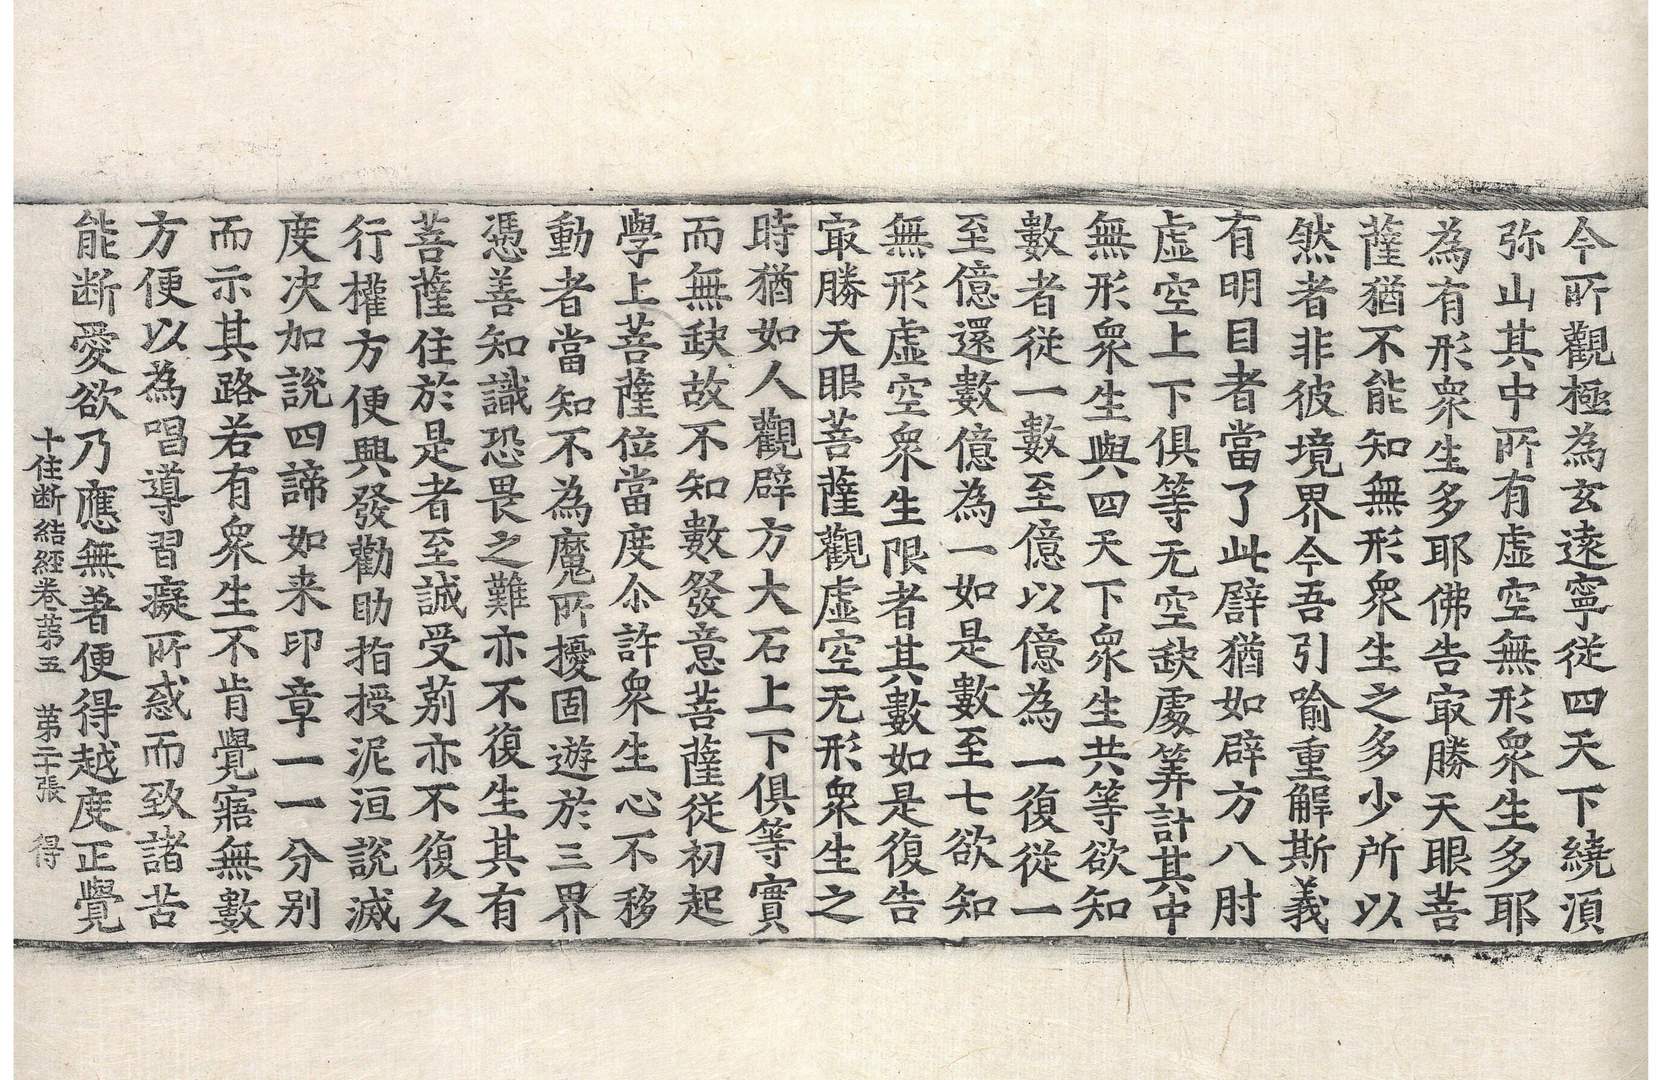 今所觀極為玄遠寧従四天下繞湏
弥山其中所有虚空無形衆生多耶
為有形衆生多耶佛告㝡勝天眼菩
薩猶不能知無形衆生之多少所以
然者非彼境界今吾引喻重解斯義
有明目者當了此譬猶如辟方八肘
虚空上下俱等无空缺處筭計其中
無形衆生與四天下衆生共等欲知
數者従一數至億以億為一復従一
至億還數億為一如是數至七欲知
無形虚空衆生限者其數如是復告
㝡勝天眼菩薩觀虚空无形衆生之
時猶如人觀辟方大石上下俱等實
而無缺故不知數發意菩薩従初起
學上菩薩位當度尒許衆生心不移
動者當知不為魔所擾固遊於三界
憑善知識恐畏之難亦不復生其有
菩薩住於是者至誠受莂亦不復久
行權方便興發勸助指授泥洹說滅
度决加說四諦如来印章一一分别
而示其路若有衆生不肯覺寤無數
方便以為唱導習癡所惑而致諸苦
能断愛欲乃應無著便得越度正覺
十住断結經卷苐五 苐二十張 得